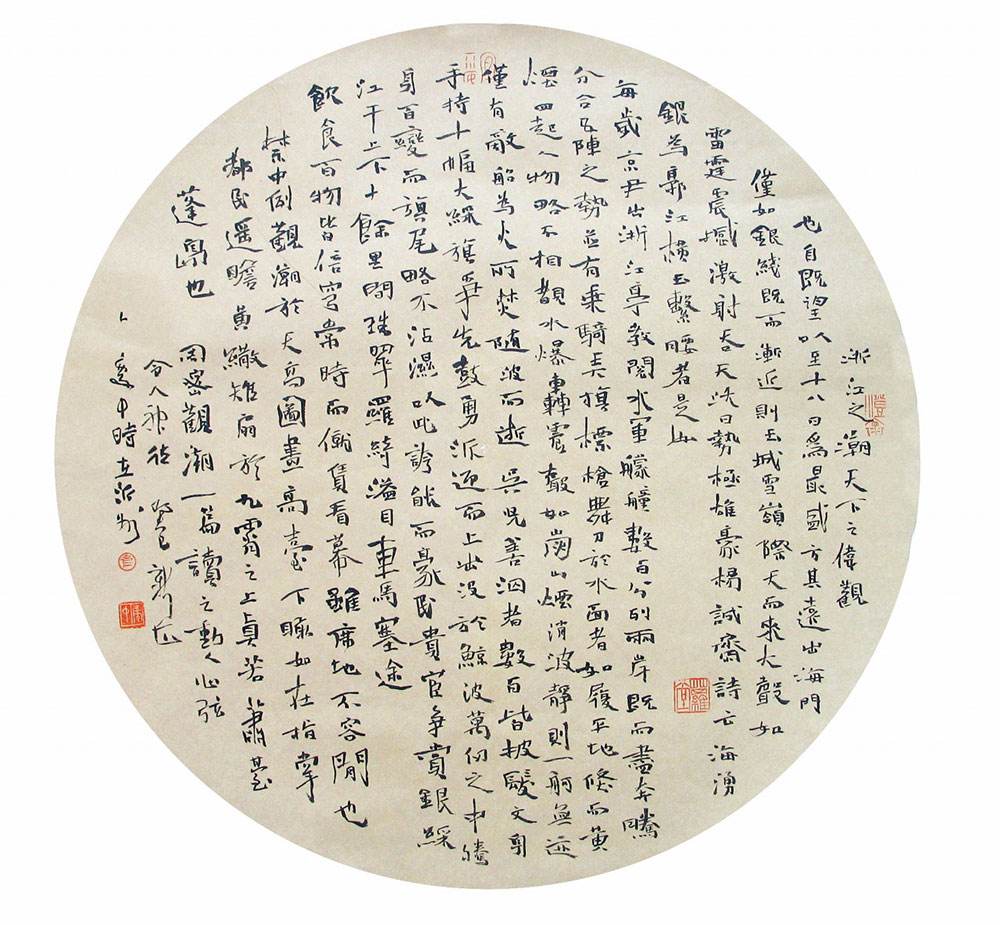 浙江之潮天下之偉觀
也自既望以至十八日為最盛方其遠出海門
僅如銀綫既而漸近則玉城雪嶺際天而來大聲如
雷霆震撼激射吞天沃日勢極雄豪楊誠齋詩云海湧
銀為郭江橫玉繫腰者是也
每歲京尹出浙江亭教閱水軍艨艟數百分列兩岸既而盡奔騰
分合五陣之勢並有乘騎弄旗標槍舞刀於水面者如履平地倏而黃
煙四起人物略不相覩水爆轟震聲如崩山煙消波靜則一舸無迹
僅有敵船為火所焚隨波而逝吳兒善泅者數百皆披髮文身
手持十幅大綵旗爭先鼓勇泝迎而上出沒於鯨波萬仞之中騰
身百變而旗尾略不沾濕以此誇能而豪民貴宦爭賞銀綵
江干上下十餘里間珠翠羅綺溢目車馬塞途
飲食百物皆倍穹常時而僦賃看幕雖席地不容閒也
禁中例觀潮於天高圖畫高臺下瞰如在指掌
都民遙瞻黃繖雉扇於九霄之上真若簫臺
蓬島也
周密觀潮一篇讀之動人心弦
令人神往
時在